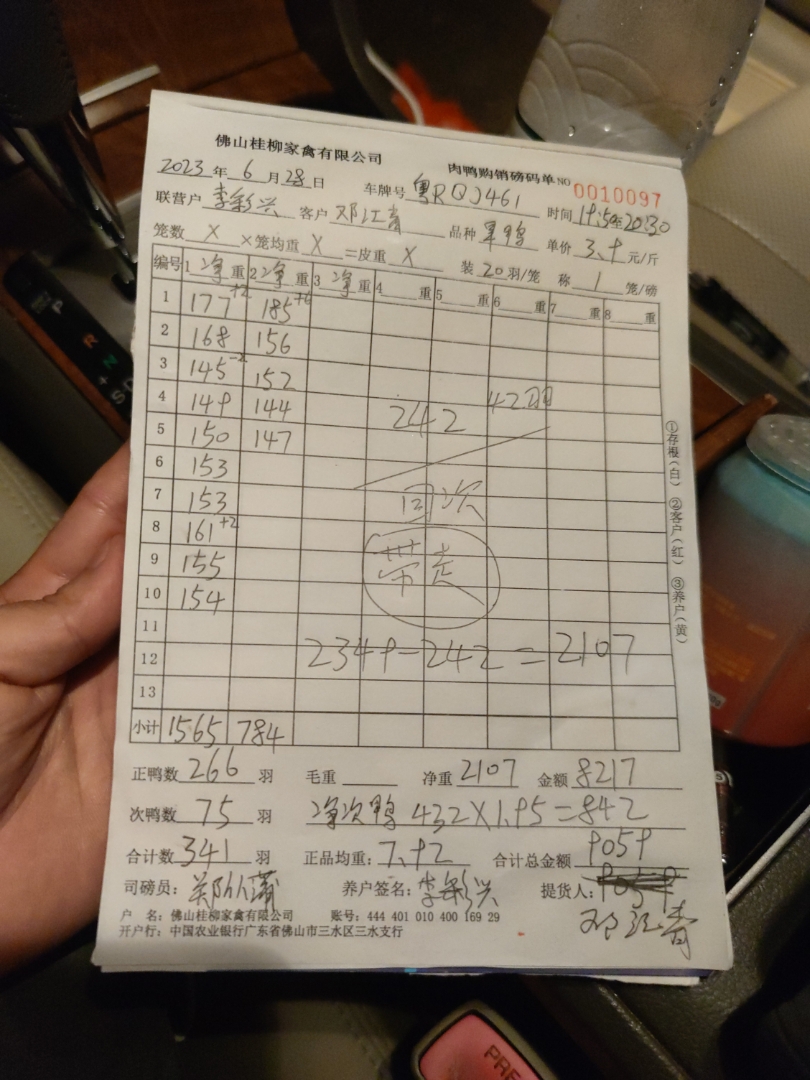 佛山桂柳家禽有限公司
肉鸭购销磅码单 NO 0010097
2023年6月28日 车牌号 粤RQJ461 时间 19:50至20:30
联营户 李彩兴 客户 邓江青 品种 单价 3.9 元/斤
笼数 X ×笼均重 X =皮重 X 装 20 羽/笼 称 1 笼/磅
编号 1 净 重 2 净 重 3 净 重 4 重 5 重 6 重 7 重 8 重
1 177+2 185+6
2 168 156
3 145-2 152
4 149 144 242 42羽
5 150 147
6 153
7 153 回次
8 161+2
9 155 带走
10 154
11
12 2349-242=2107
13
小计 1565 784
①存根(白) ②客户(红) ③养户(黄)
正鸭数 266 羽 毛重 净重 2107 金额 8217
次鸭数 75 羽 净次鸭 432×1.95=842
合计数 341 羽 正品均重: 7.92 合计总金额 9059
司磅员: 养户签名: 李彩兴 提货人: 9059
邓江青
户 名: 佛山桂柳家禽有限公司 账号: 444 401 010 400 169 29
开户行: 中国农业银行广东省佛山市三水区三水支行
P
R
N
PRE